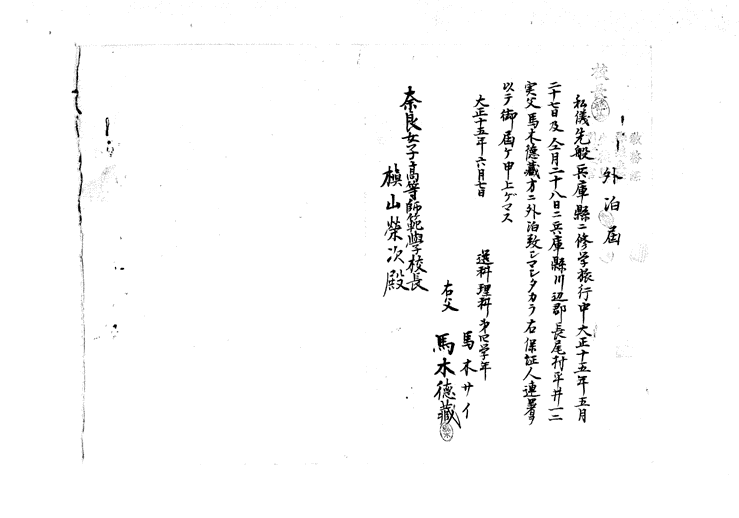 外泊届
私儀先般兵庫縣ニ修学旅行中大正十五年五月
二十七日及仝月二十八日ニ兵庫縣川辺郡長尾村平井一二
実父馬木徳藏方ニ外泊致シマシタカラ右保証人連署ヲ
以テ御届ケ申上ゲマス
大正十五年六月七日
選科理科第四学年
馬木サイ
右父
馬木徳藏
奈良女子高等師範學校長
槙山榮次殿
校長